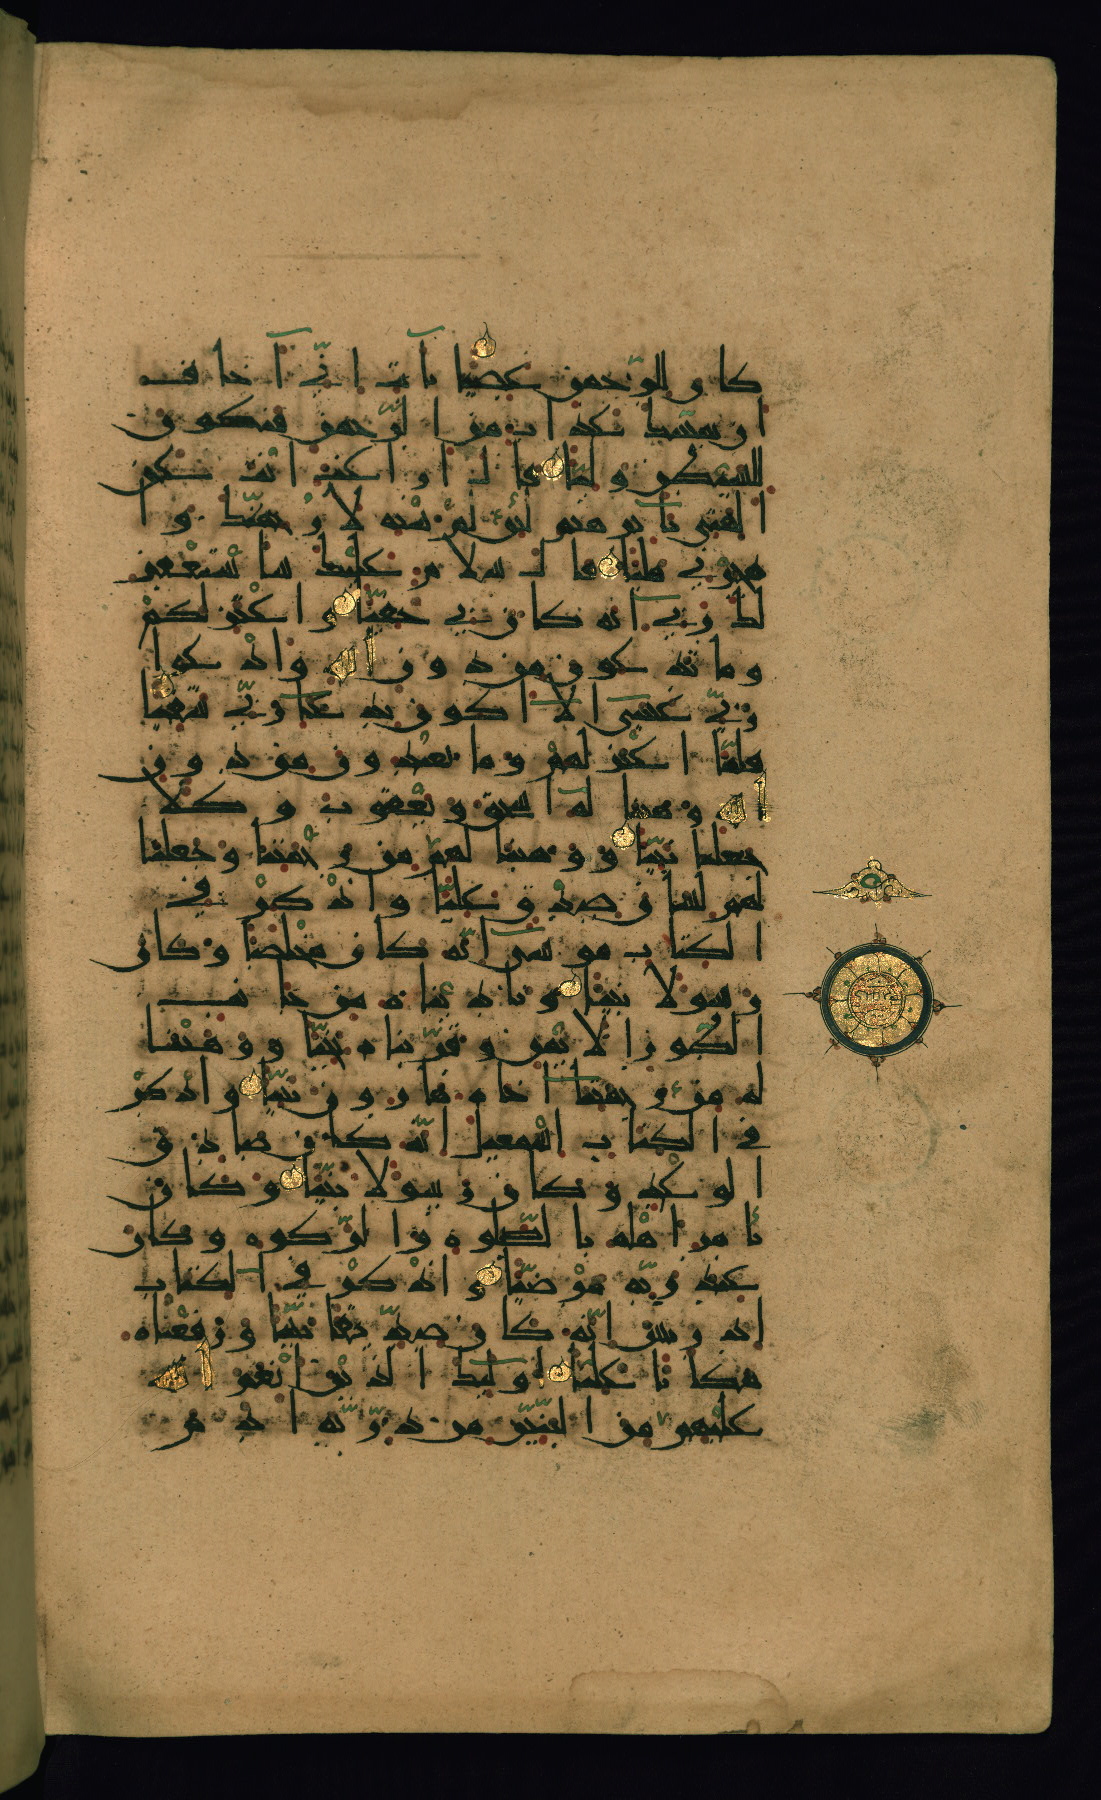 كان للرحمن عصيا يا أبت إني أخاف
ان يمسك عذاب من الرحمن فتكون
للشيطن وليا قال اراغب انت عن
الهتي يا برهيم لئن لم تنته لارجمنك وا
هجرني مليا قال سلام عليك ساستغفر
لك ربي انه كان بي حفيا واعتزلكم
وما تدعون من دون الله وادعوا
ربي عسى الا اكون بدعا ربي شقيا
فلما اعتزلهم وما يعبدون من دون
الله وهبنا له اسحق ويعقوب وكلا
جعلنا نبيا ووهبنا لهم من رحمتنا وجعلنا
لهم لسان صدق عليا واذكر في
الكتاب موسى انه كان مخلصا وكان
رسولا نبيا وناديناه من جانب
الطور الايمن وقربناه نجيا ووهبنا
له من رحمتنا اخاه هارون نبيا واذكر
في الكتاب اسمعيل انه كان صادق
الوعد وكان رسولا نبيا وكان
يامر اهله بالصلوه والزكوه وكان
عند ربه مرضيا واذكر في الكتاب
ادريس انه كان صديقا نبيا ورفعناه
مكانا عليا اوليك الذين انعم الله
عليهم من النبيين من ذرية ادم